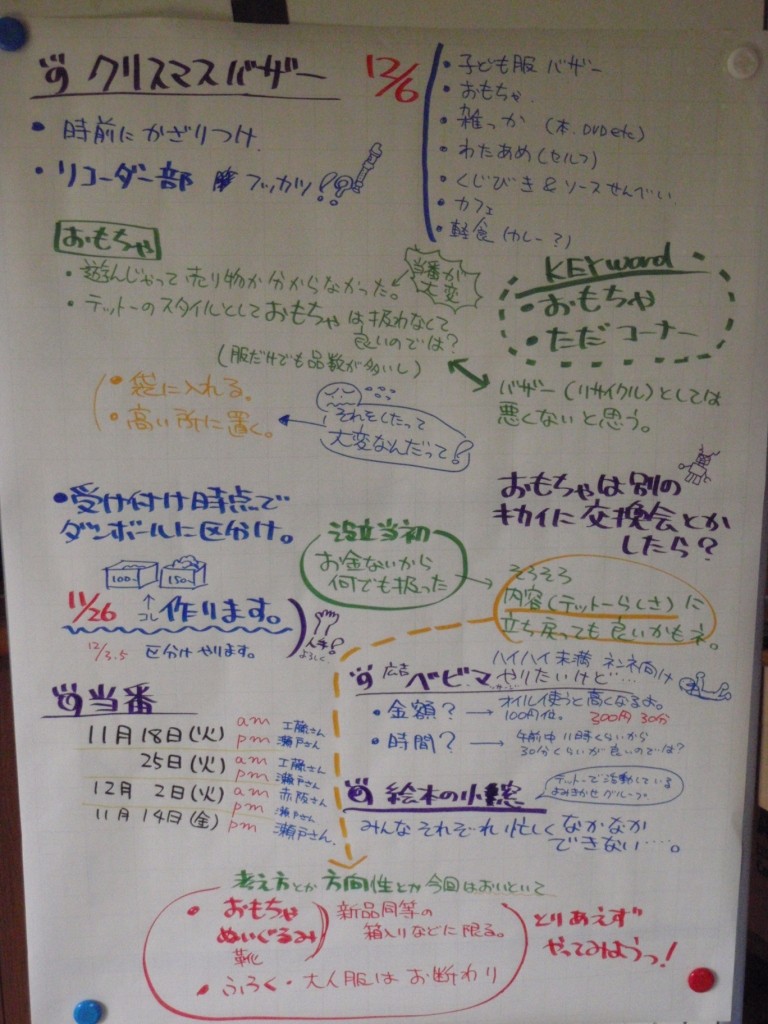 クリスマスバザー 12/6
・時前にかざりつけ.
・リコーダー部 フッカツ!!?
・子ども服 バザー
・おもちゃ.
・雑っか (本.DVD etc)
・わたあめ(セルフ)
・くじびき & ソースせんべい
・カフェ
・軽食(カレー?)
おもちゃ
・遊んじゃって売り物か分からなかった。
当番が
大変
・テットーのスタイルとしておもちゃは扱わなくて
良いのでは?
(服だけでも品数が多いし)
KEYword
・おもちゃ
・ただコーナー
バザー(リサイクル)としては
悪くないと思う。
・袋に入れる.
・高い所に置く。
それをしたって
大変なんだって!
・受け付け時点で
ダンボールに区分け。
100. 150.-
↑コレ
11/26 作ります。
12/3.5 区分けやります。
人手!
よろしく
おもちゃは別の
キカイに交換会とか
したら?
設立当初
お金ないから
何でも扱った
そろそろ
内容(テットーらしさ)に
立ち戻っても良いかもネ。
③当番
11月18日(火) am 工藤さん
pm 瀬戸さん
25日(火) am 工藤さん
pm 瀬戸さん
12月 2日(火) am 赤阪さん
pm 瀬戸さん
11月14日(金) pm 瀬戸さん.
広告 ベビマ
ハイハイ未満 ネンネ向け
やりたいけど…
・金額? → オイル使うと高くなるよ。
100円位。 300円 30分
・時間? → 午前中 11時くらいから
30分くらいが良いのでは?
② 絵本の小
テットーで活動している
よみきかせグループ.
みんなそれぞれ忙しくなかなか
できない…。
考え方とか方向性とか今回はおいといて
・おもちゃ
ぬいぐるみ
靴
新品同等の
箱入りなどに限る。
・ふろく・大人服はお断わり
とりあえず
やってみようっ!